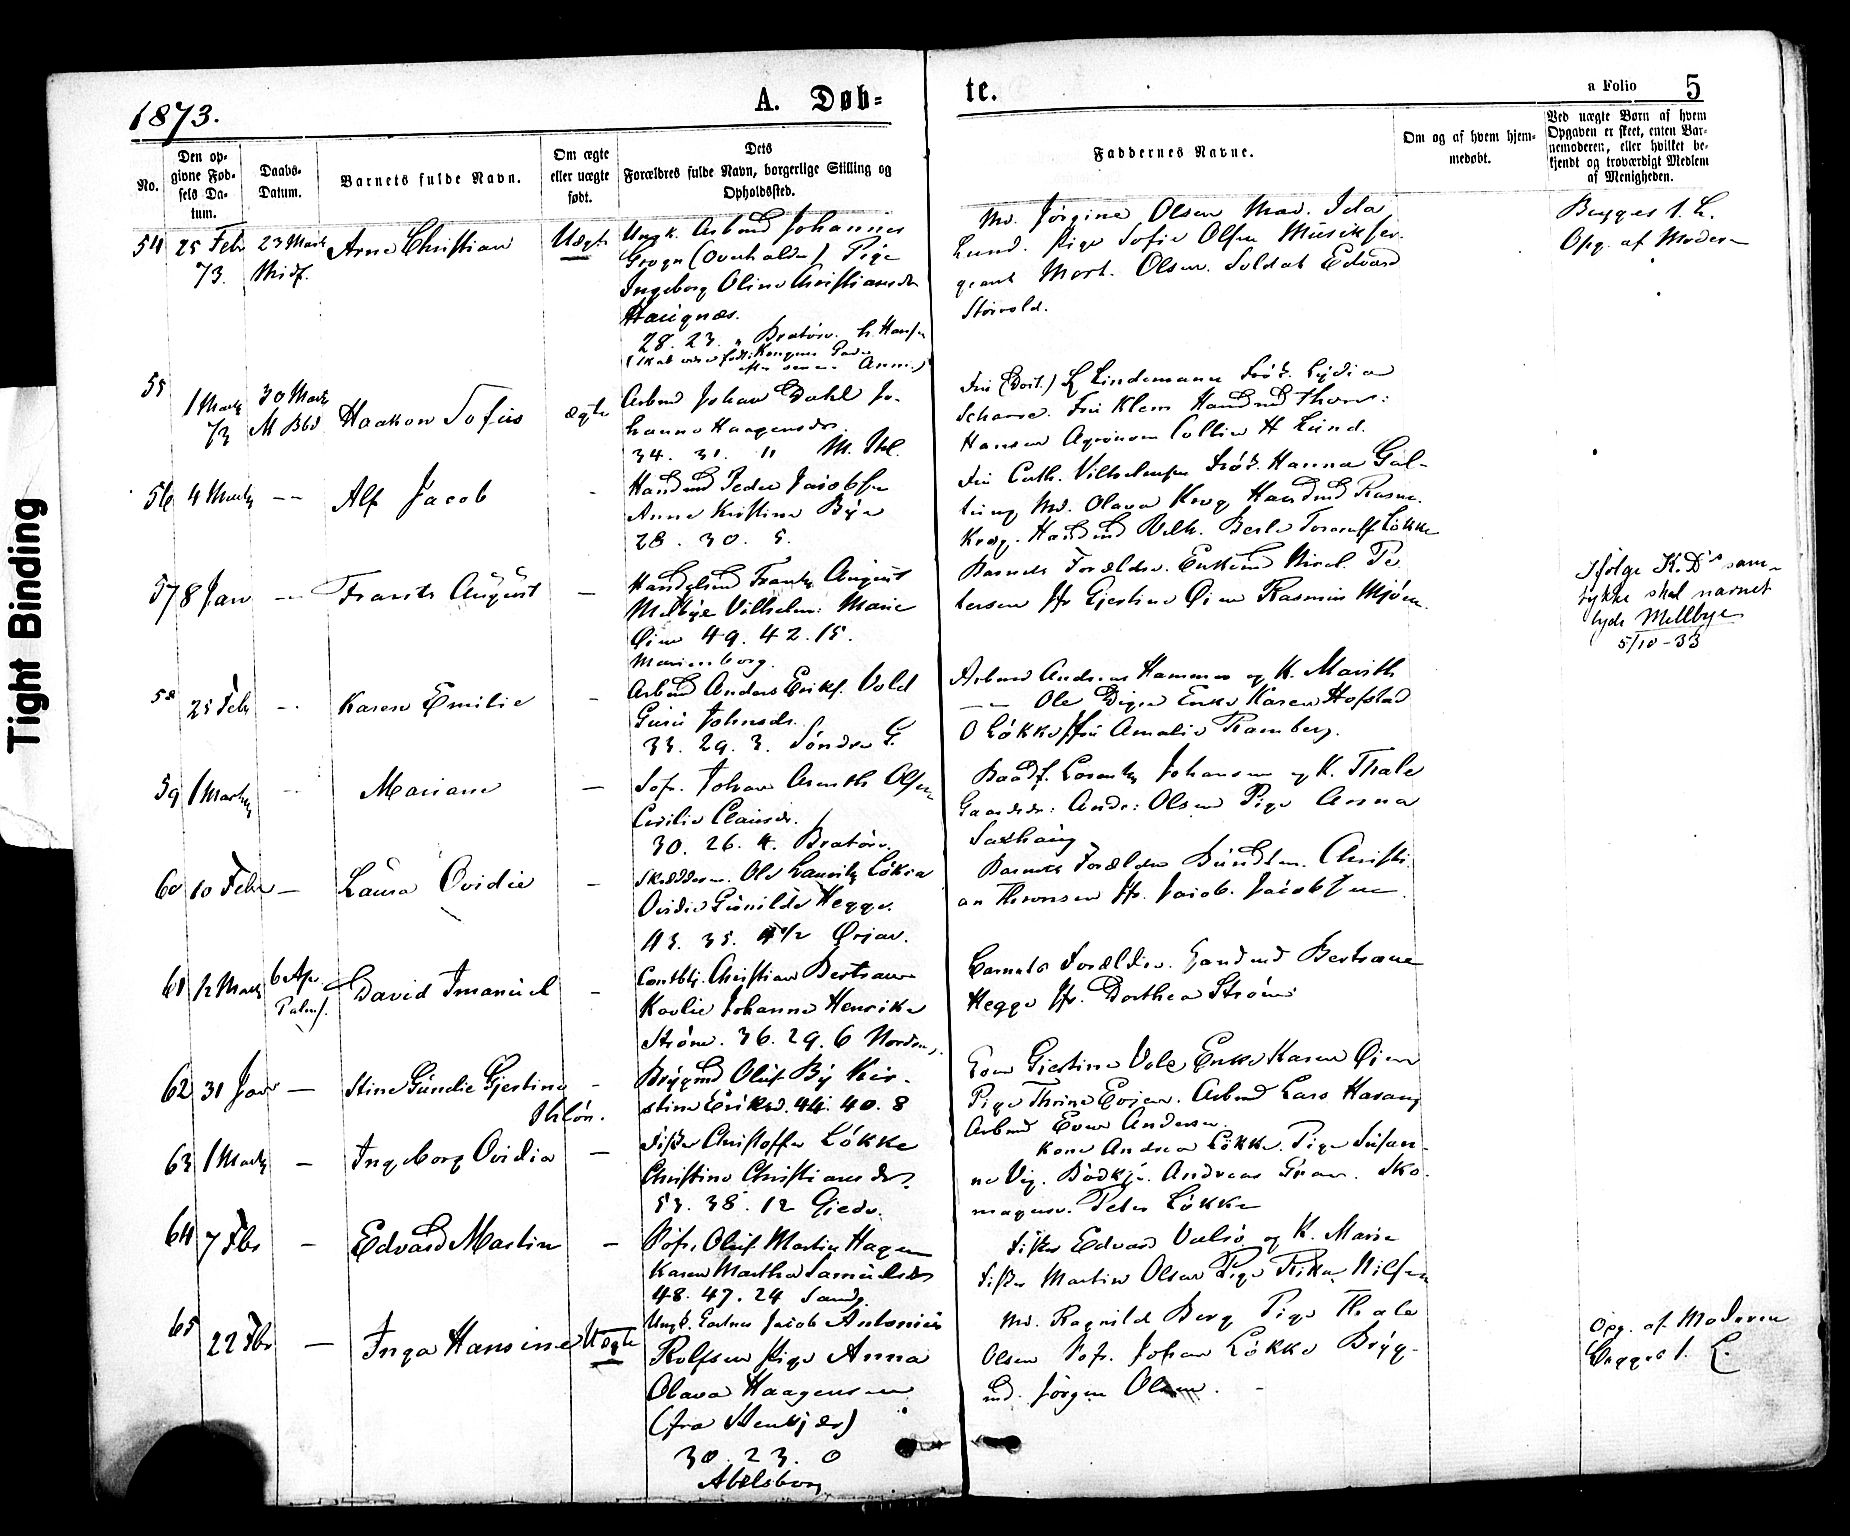 Tight Binding
1873.
A. Døb=
te.
a Folio 5
No.
Den op-
givne Fød-
sels Da-
tum.
Daabs-
Datum.
Barnets fulde Navn.
Om ægte
eller uægte
født.
Dets
Forældres fulde Navn, borgerlige Stilling og
Opholdssted.
Faddernes Navne.
Om og af hvem hjem-
medøbt.
Ved uægte Børn af hvem
Opgaven er skeet, enten Bar-
nemoderen, eller hvilket be-
kjendt og troværdigt Medlem
af Menigheden.
54 25 Febr 73. 23 Marts Midf.
Arne Christian
Uægte
Ungk. Arbmd Johannes
(Overhalden) Pige
Ingeborg Oline Christiansdr
28. 23. "
Md. Jørgine Olsen Mad. Ida
Lund. Pige Sofie Olsen Musikser-
geant Mort. Olsen. Soldat Edvard
Begges 1. L.
Opg. af Moderen
55 1 Marts 73 30 Marts
Haakon Sofus
ægte
Arbmd Johan Dahl Jo-
hanna Haagensdr.
34. 31. "
Fru Lindemann Frøk. Lydia
Scharre. Fru Klem Handmd Thorv:
Hansen Agronom Collin H Lund.
56 4 Marts - -
Alf Jacob
-
Handmd Peder Jacobsen
Anna Kristine Bye
28. 30. 5.
Fru Cath. Vilhelmsen Frøk. Hanna Gal-
tung Md. Olava Krog Handmd Rasm.
Krog. Handmd Vilh. Løkke
57 8 Jan - -
Frants August
-
Frantz August
Melbye Vilhelm: Marie
Øien 49. 42. 15.
Marienborg.
Barnets Forældre. Enkemd Nicol. Pe
tersen Hr Gjertine Øien Rasmus Mjøen.
Ifølge K.D.s sam-
tykke skal navnet
lyde Mellbye
5/10-33
58 25 Febr - -
Karen Emilie
-
Arbmd Anders Eriks. Vold
Guru Johnsdr.
33. 29. 3. Søndre G.
Arbmd Andreas Hammer og K. Marith
- - Ole Enke Karen Hofstad
O Løkke Fru Amalie Ramberg.
59 1 Marts - -
Mariane
-
Sof. Johan Arnth Olsen
Cecilie Clausdr.
30. 26. 4. Bratøren.
Baadsf. Lorentz Johansen og K. Thale
Gaardsdr: Andr: Olsen Pige Anna
Saxhaug
60 10 Febr -
Laura Ovidie
-
Skrædderm. Ole Lauritz Løkke
Ovidie Gunilde Hegge.
43. 35. 4 1/2
Barnets Forældre Christi-
an Thoresen Hr. Jacob Jacobsen.
61 12 Marts 6 Apr Palms.
David Imanuel
-
Constbl. Christian Bertrann
Kovlie Johanna Henrikke
Strøm. 36. 29. 6
Barnets Forældre. Gaardmd Bertrann
Hegge Hr. Dorthea Strøm.
62 31 Jan -
Stine Gundie Gjertine
-
Brygmd Oluf By Kir-
stine Eriksd. 44. 40. 8
Ihlen.
Kone Gjertine Vole Enke Karen Øien
Pige Thrine Evjen. Arbmd Lars Hasaas
Arbmd Even Andersen.
63 1 Marts -
Ingeborg Ovidia
-
Fisker Christoffer Løkke
Christine Christiansdr.
53. 38. 12
Kone Andrea Løkke. Pige Susan-
ne Vig. Bødkjr. Andreas Gran. Sko-
magersv. Peter Løkke
64 7 Fbr -
Edvard Martin
-
Sof. Oluf Martin Hagen
Karen Martha Samuelsdr
48. 47. 24
Fisker Edvard Valsø og K. Marie
Fisker Martin Olsen Pige Rika Nilsen
65 22 Fbr -
Inga Hansine
Uægte
Ungk. Gartner Jacob Antonius
Rolfsen Pige Anna
Olava Haagensen
(fra Stenkjær)
30. 23. 0
Abelsborg
Md. Ragnild Berg Pige Thale
Olsen Sof. Johan Løkke Bryg-
md. Jørgen Olsen.
Opg. af Moderen
Begges 1. L.